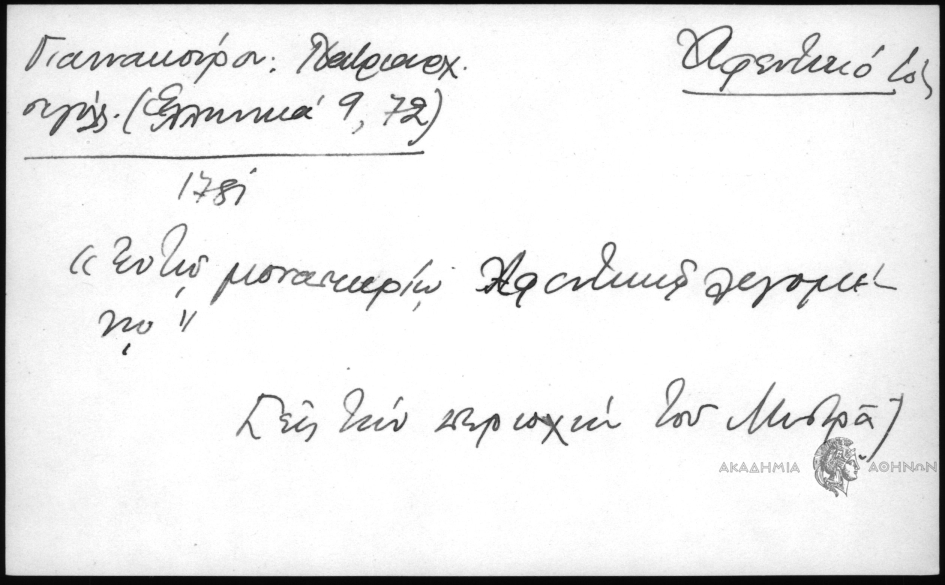 Γιαννακοπούλου: Πατριαρχ.
σιγίλλ. (Ἑλληνικά 9, 72)
Ἀφεντικό τό
1781
"ἐν τῷ μοναστηρίῳ Ἀφεντικῷ λεγομέ-
νῳ"
[εἰς τήν περιοχήν τοῦ Μυστρᾶ]
ΑΚΑΔΗΜΙΑ ΑΘΗΝΩΝ